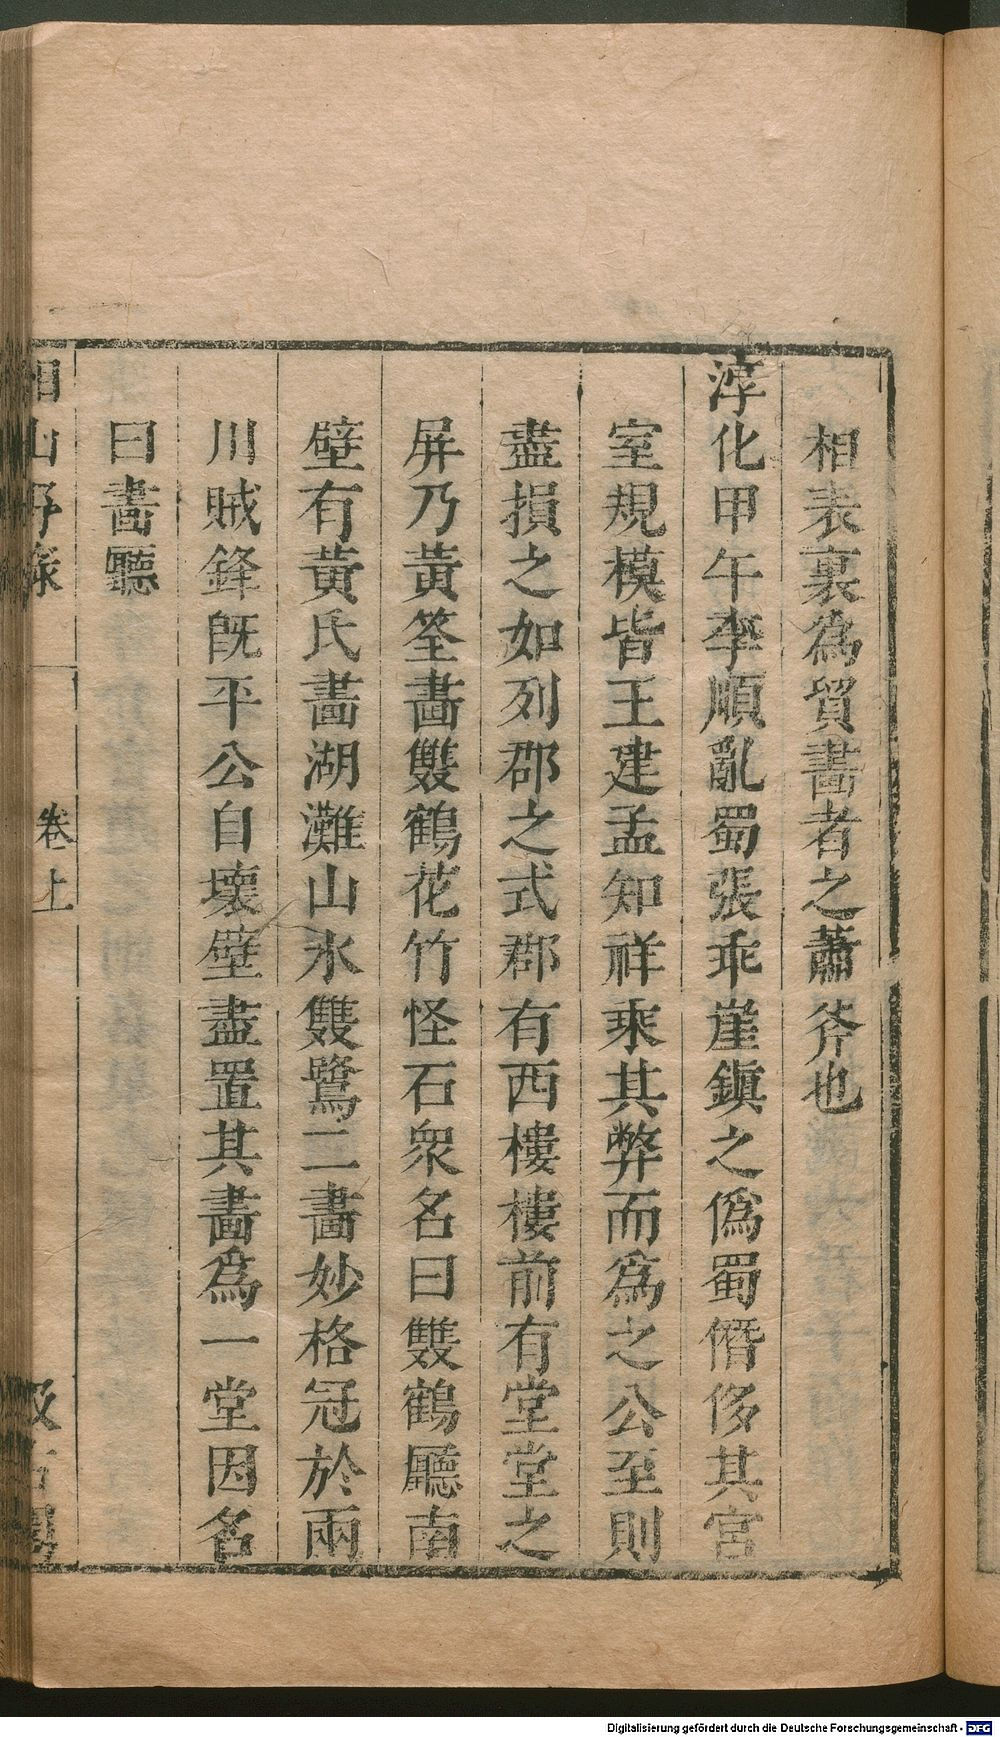 相表裏爲貿畵者之蕭斧也
淳化甲午李順亂蜀張乖崖鎭之僞蜀僭侈其宮
室規模皆王建孟知祥乘其弊而爲之公至則
盡損之如列郡之式郡有西樓樓前有堂堂之
屏乃黃筌畵雙鶴花竹怪石衆名曰雙鶴廳南
壁有黃氏畵湖灘山水雙鷺二畵妙格冠於兩
川賊鋒旣平公自壞壁盡置其畵爲一堂因名
曰畵廳
湘山野錄 卷上 汲古閣
Digitalisierung gefördert durch die Deutsche Forschungsgemeinschaft - DFG